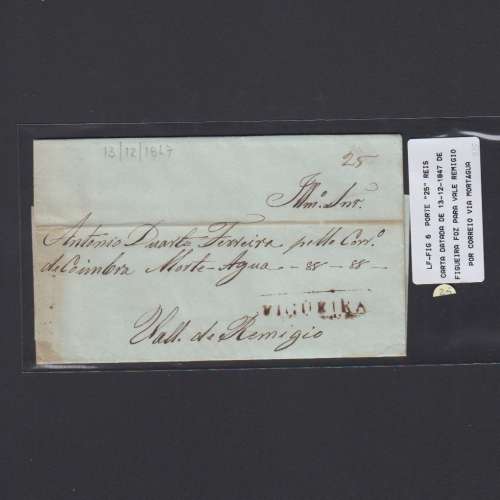 13/12/1847
25
Illmo. Snr.
Antonio Duarte Ferreira pello Corro.
de Coimbra Morte-Agua
FIGUEIRA
Vall. de Remigio
LF-FIG 6 PORTE "25" REIS
CARTA DATADA DE 13-12-1847 DE
FIGUEIRA FOZ PARA VALE REMIGIO
POR CORREIO VIA MORTAGUA